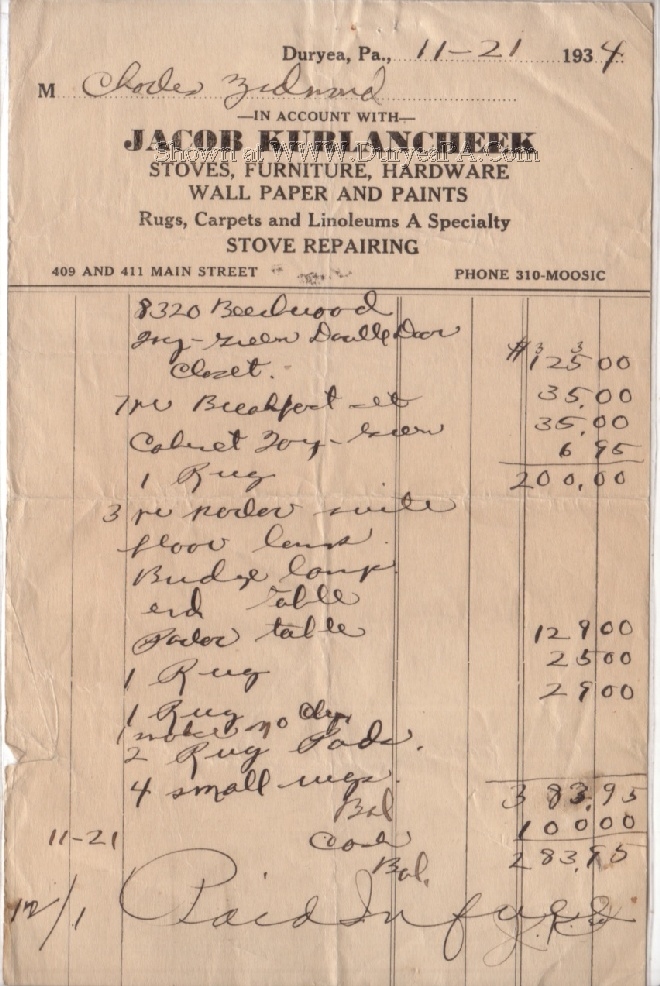 Duryea, Pa., 11-21 1934
M Charles
—IN ACCOUNT WITH—
JACOB KURLANCHEEK
Shown at WWW.DuryeaPA.Com
STOVES, FURNITURE, HARDWARE
WALL PAPER AND PAINTS
Rugs, Carpets and Linoleums A Specialty
STOVE REPAIRING
409 AND 411 MAIN STREET PHONE 310-MOOSIC
8320 Beechwood
Ivory-Green Double Door
Closet. $125 00
7 pc Breakfast set 35.00
Cabinet Ivory-Green 35.00
6 95
1 Rug 200.00
3 pc parlor suite
floor lamp
Bridge lamp
end table
Parlor table 129 00
1 Rug 25 00
1 Rug 29 00
1 no
2 Rug Pads.
4 small rugs.
Bal 383.95
11-21 Cash 100 00
Bal. 283.95
12/1 Paid In full